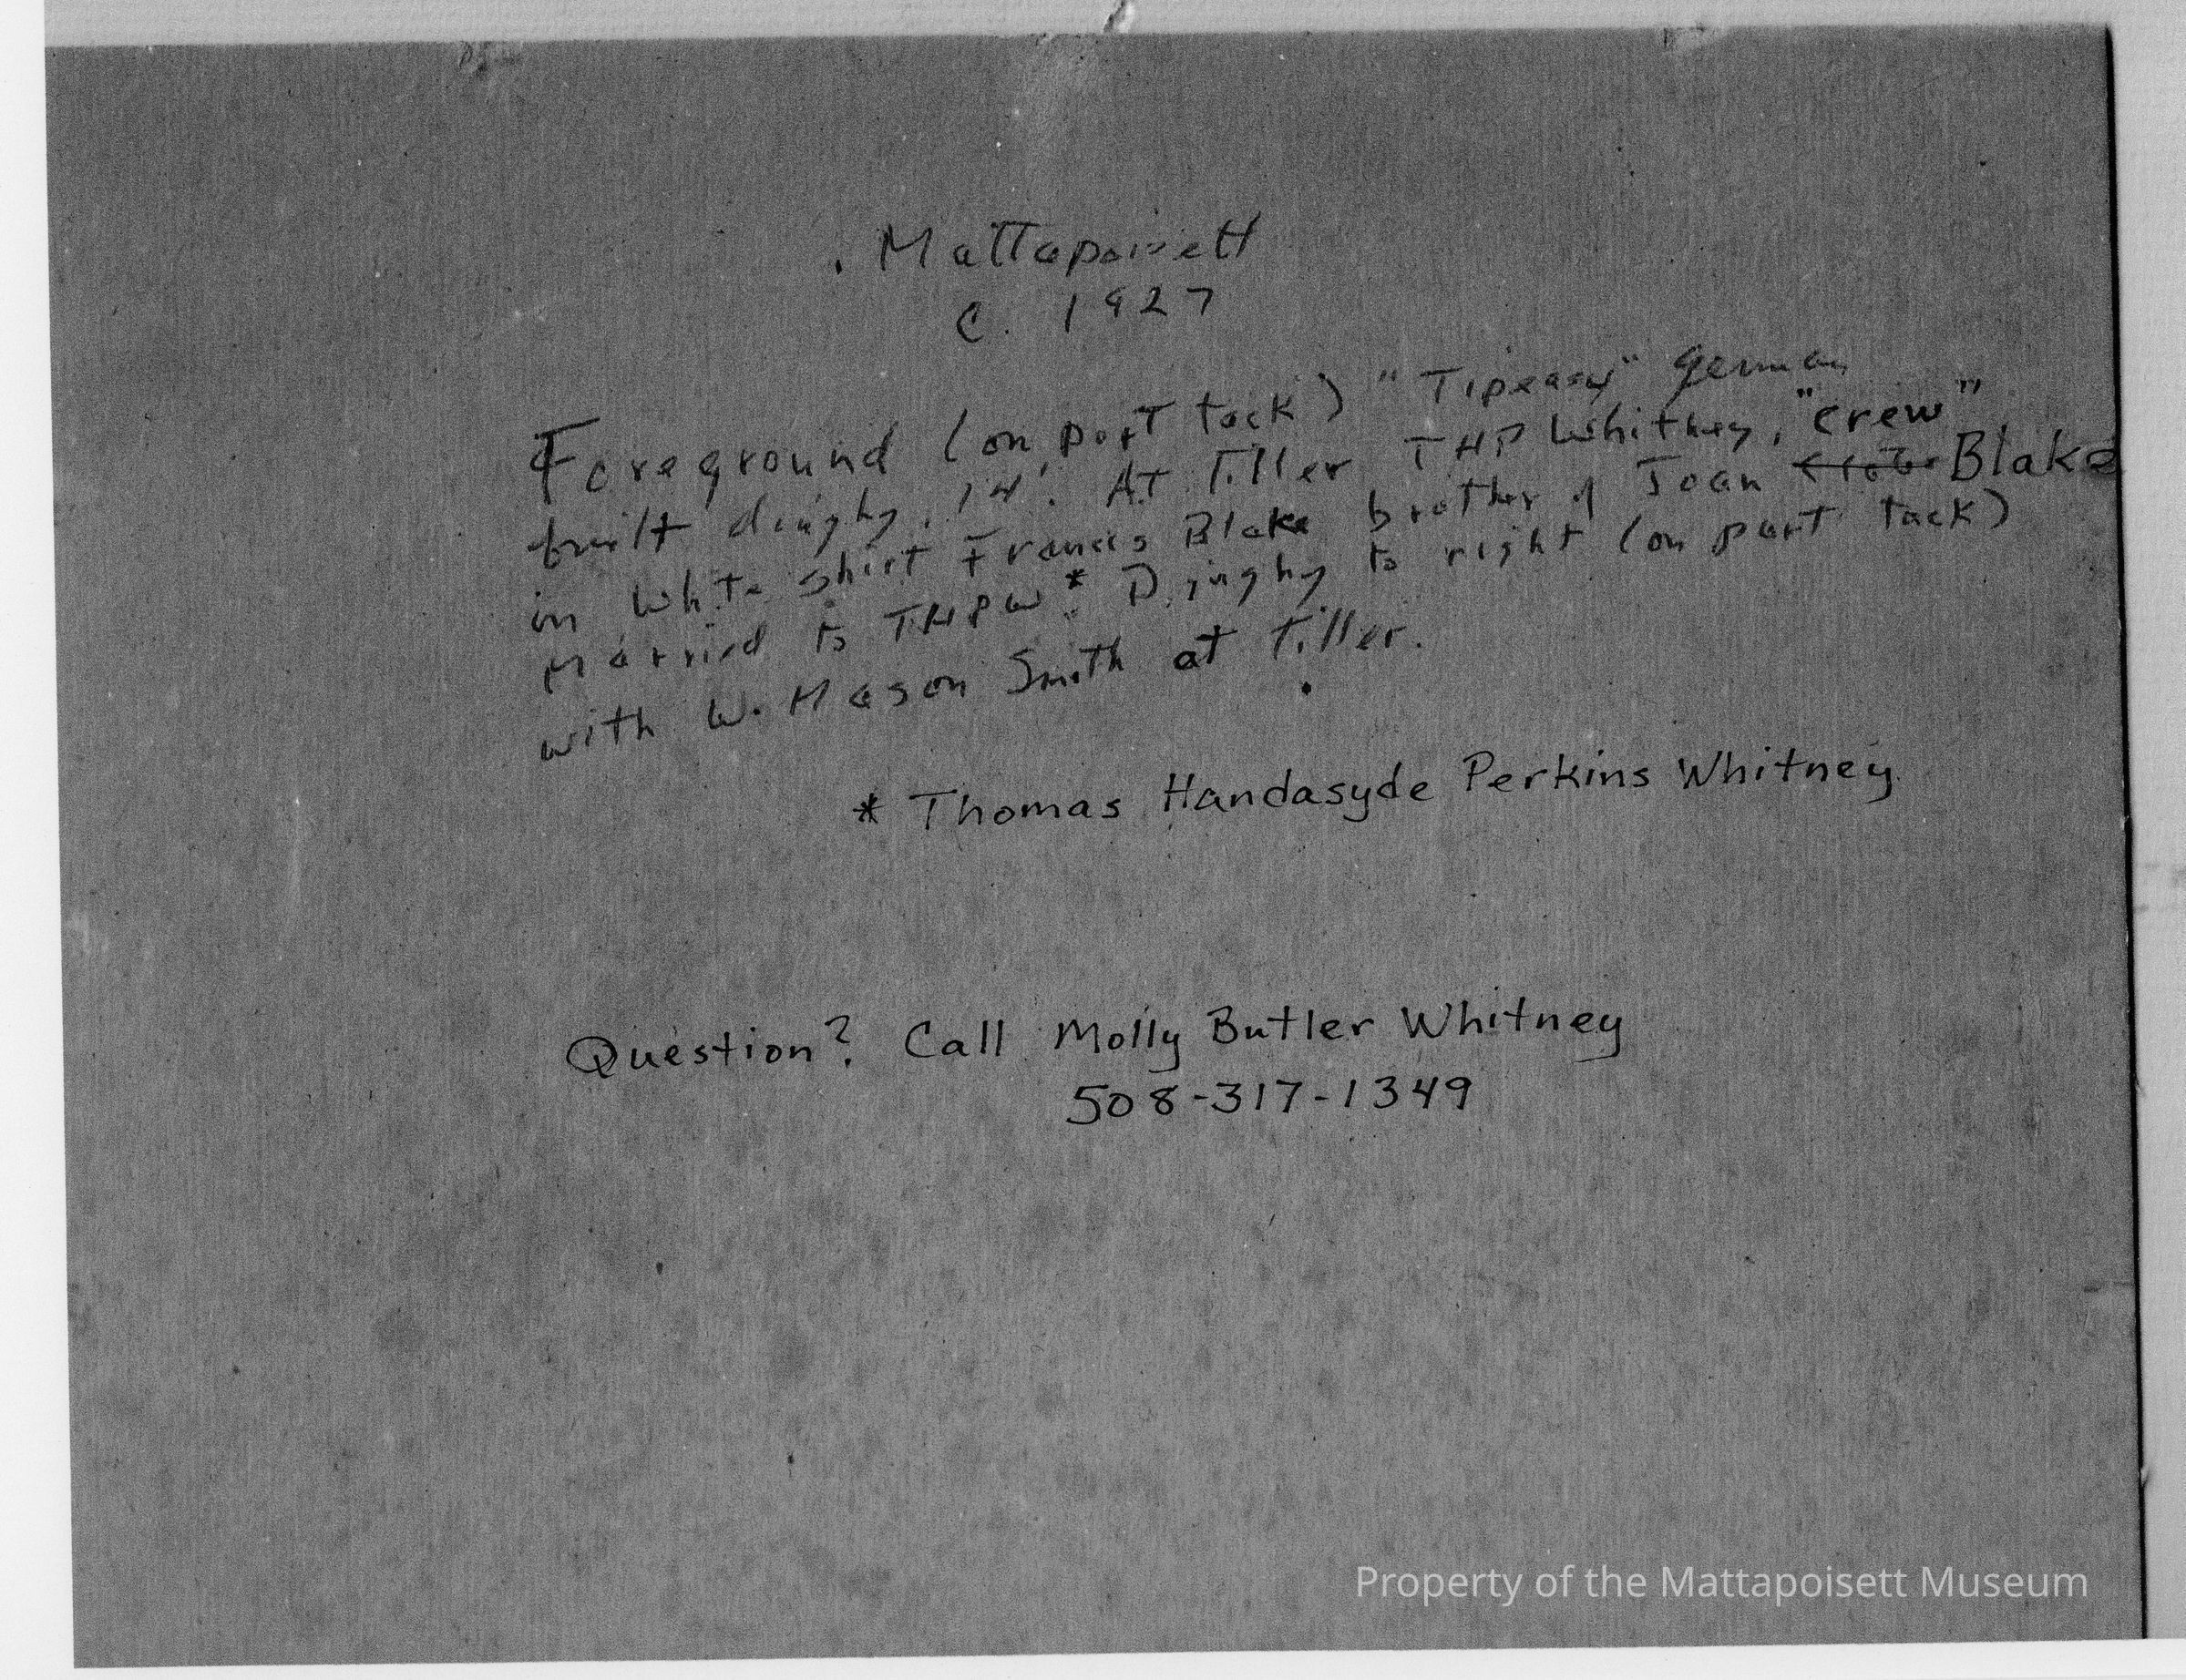 Mattapoisett
c. 1927
Foreground (on port tack) "Tipeasy" German
built dinghy, 14'. At Tiller THP Whitney, "crew"
in white shirt Francis Blake brother of Joan Blake
married to THPW* Dinghy to right (on port tack)
with W. Mason Smith at Tiller.
* Thomas Handasyde Perkins Whitney
Question? Call Molly Butler Whitney
508-317-1349
Property of the Mattapoisett Museum